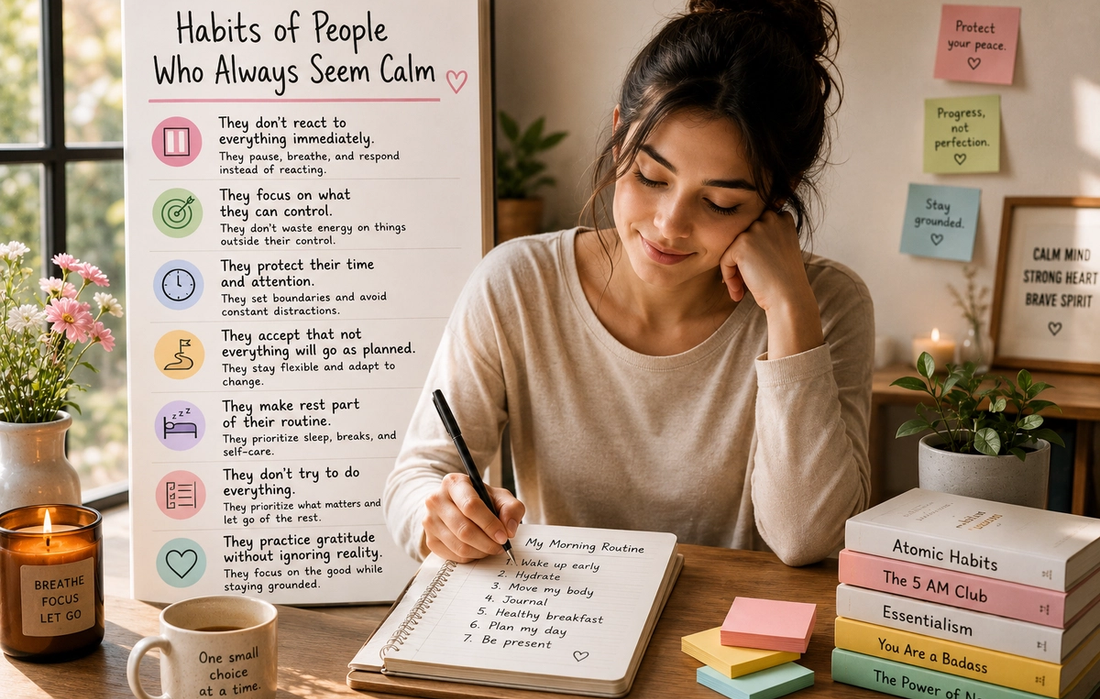 Habits of People
Who Always Seem Calm
They don't react to
everything immediately.
They pause, breathe, and respond
instead of reacting.
They focus on what
they can control.
They don't waste energy on things
outside their control.
They protect their time
and attention.
They set boundaries and avoid
constant distractions.
They accept that not
everything will go as planned.
They stay flexible and adapt to
change.
They make rest part
of their routine.
They prioritize sleep, breaks, and
self-care.
They don't try to do
everything.
They prioritize what matters and
let go of the rest.
They practice gratitude
without ignoring reality.
They focus on the good while
staying grounded.
Protect
your peace.
Progress,
not
perfection.
Stay
grounded.
CALM MIND
STRONG HEART
BRAVE SPIRIT
BREATHE
FOCUS
LET GO
One small
choice
at a time.
My Morning Routine
1. Wake up early
2. Hydrate
3. Move my body
4. Journal
5. Healthy breakfast
6. Plan my day
7. Be present
Atomic Habits
The 5 AM Club
Essentialism
You Are a Badass
The Power of